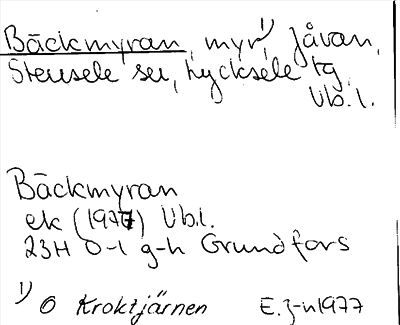 Bäckmyran, myr¹⁾, Jåvan,
Stensele sn, Lycksele tg,
Vb. l.
Bäckmyran
ek (1977) Vb.l.
23H 0-1 g-h Grundfors
1) O Kroktjärnen E.J-n 1977